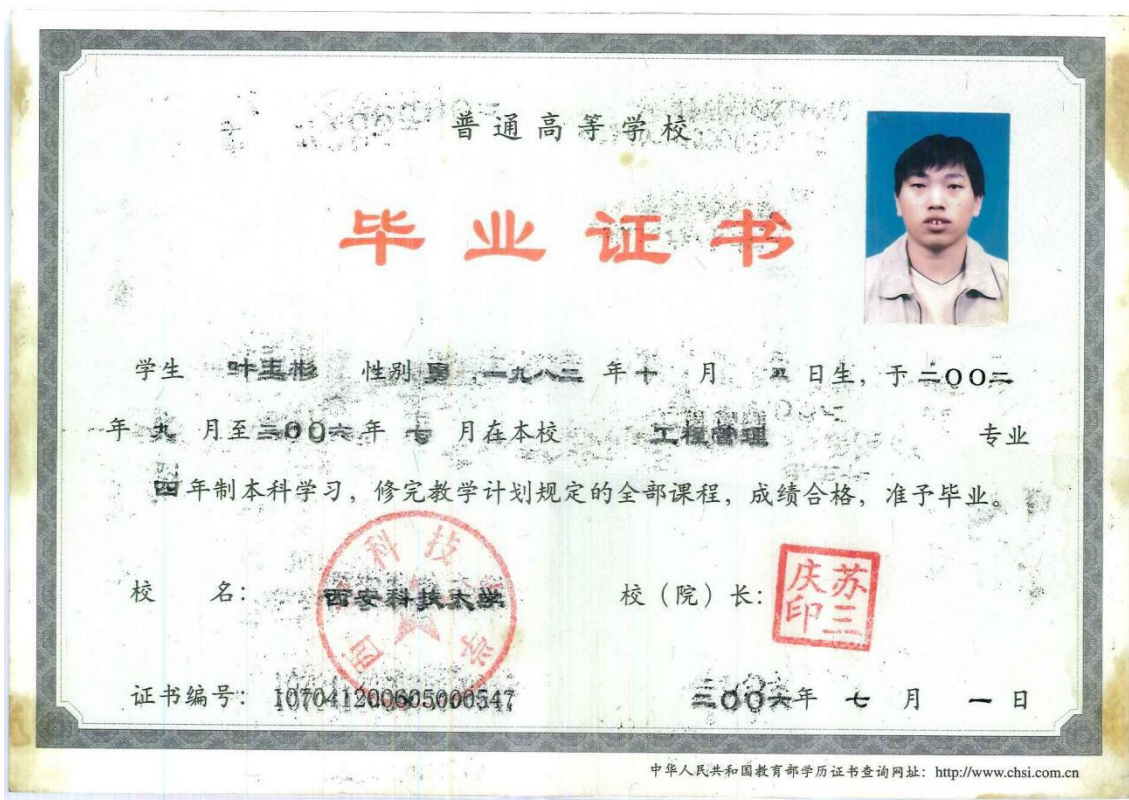 普通高等学校
毕业证书
学生 叶玉彬 性别 男，一九八三 年 十 月 五 日生，于 二００二
年 九 月至 二００六 年 七 月在本校 工程管理 专业
四 年制本科学习，修完教学计划规定的全部课程，成绩合格，准予毕业。
校 名： 西安科技大学 校（院）长： 苏三庆印
证书编号： 107041200605000547 二００六年 七 月 一 日
中华人民共和国教育部学历证书查询网址：http://www.chsi.com.cn